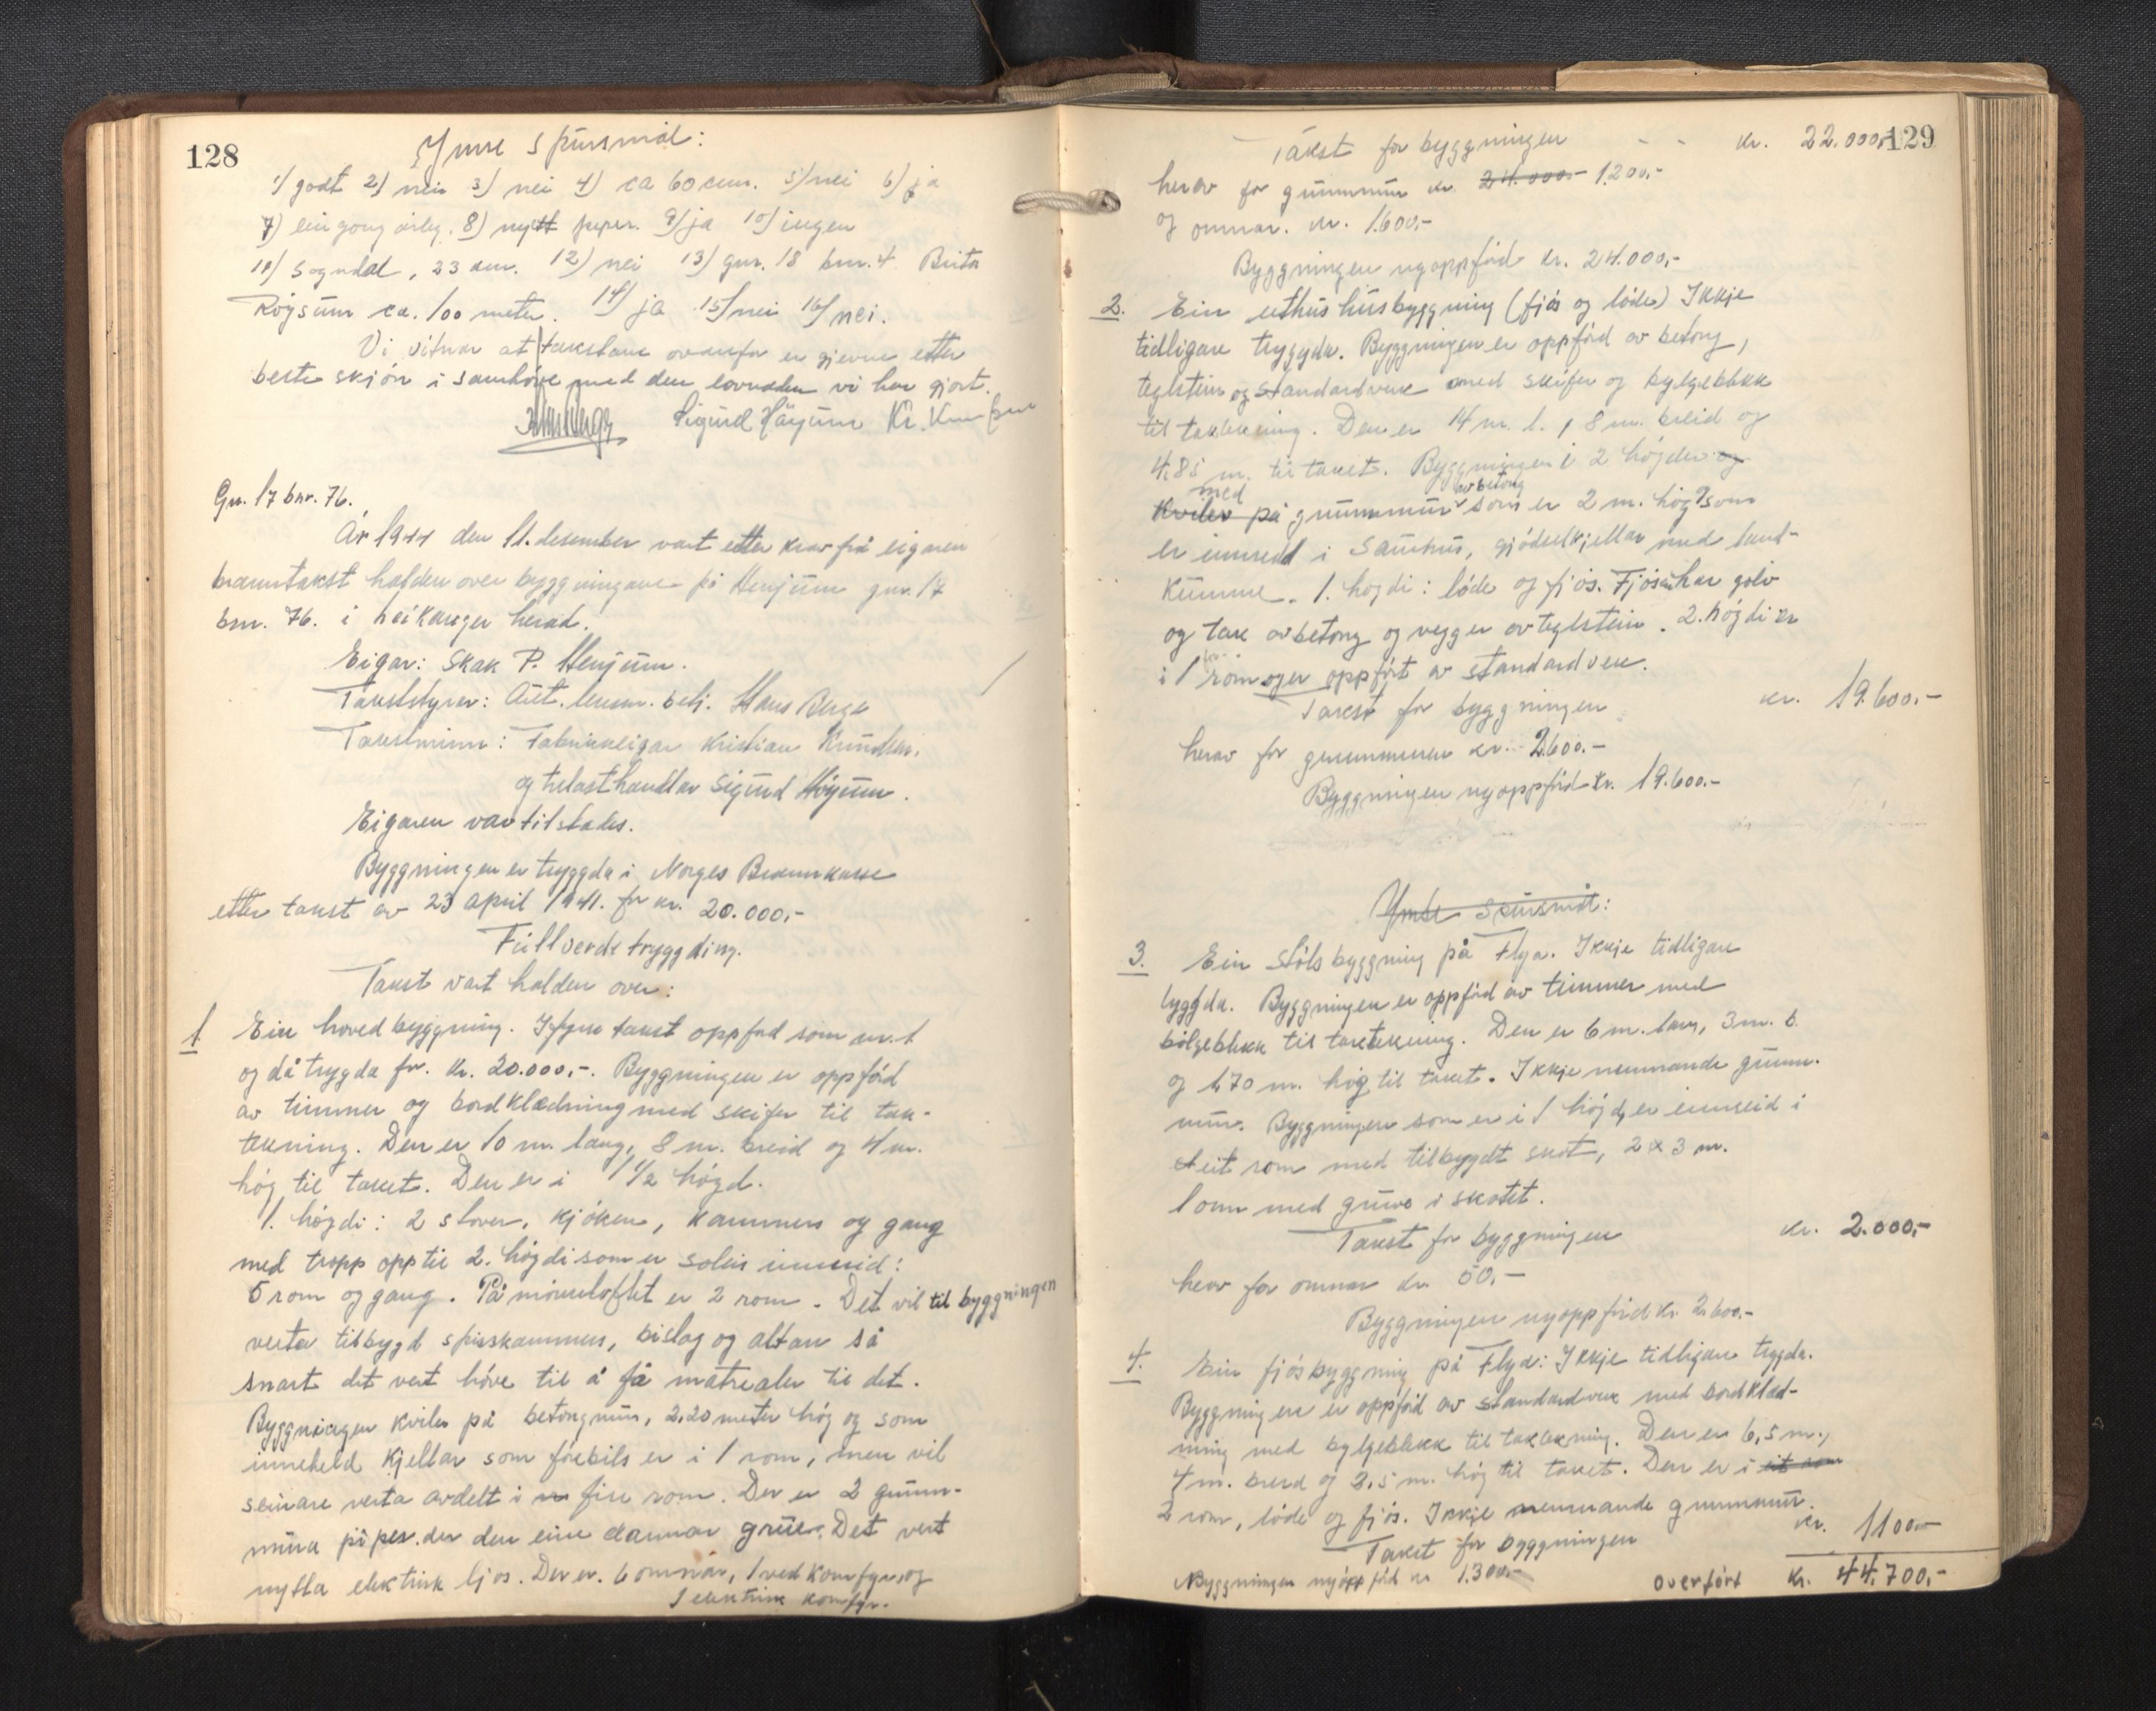 128
Ymse spursmål:
1) godt 2) nei 3) nei 4) ca 60 cm. 5) nei 6) ja
7) ein gong årleg. 8) nytt 9) ja 10) ingen
11) Sogndal, 23 km. 12) nei 13) gnr. 18 bnr. 4 Brita
Röysum ca. 100 meter. 14) ja 15) nei 16) nei.
Vi vitnar at takstane ovanfor er gjevne etter
beste skjön i samhöve med den lovnaden vi har gjort.
Sigurd Höyum Kr. Knudsen
Gn. 17 bnr. 76.
År 1944 den 11. desember vart etter krav frå eigaren
branntakst halden over byggningane på Henjum gnr. 17
bnr. 76. i Leikanger herad.
Eigar: Skak P. Henjum.
Takststyrer: Aut. lensm. betj. Hans Berge
Takstminn: Fabrikkeigar Kristian Knudsen.
og trelasthandlar Sigurd Höyum.
Eigaren var tilstades.
Byggningen er tryggda i Norges Brannkasse
etter takst av 23 april 1941. for kr. 20.000,-
Fullverdi tryggding.
Takst vart halden over:
1. Ein hovedbyggning. I fyrre takst oppförd som nr. 1
og då trygda for. kr. 20.000,-. Byggningen er oppförd
av timmer og bordklædning med skifer til tak-
tekning. Den er 10 m. lang, 8 m. breid og 4 m.
høg til taket. Den er i 1 1/2 högd.
1. högdi: 2 stover, kjöken, kammers og gang
med tropp opp til 2. högdi som er soleis innreid:
5 rom og gang. På möneloftet er 2 rom. Det vil til byggningen
verta tilbygd spisskammers, bislag og altan så
snart det vert höve til å få matrealer til det.
Byggningen kviler på betongmur, 2,20 meter høg og som
inneheld kjellar som förebils er i 1 rom, men vil
seinare verta avdelt i fire rom. Der er 2 grunn-
mura piper der den eine dannar grue. Det vert
nytta elektrisk ljos. Der er. 6 omnar, 1 vedkomfyr og
1 elektrisk komfyr.
129
Takst for byggningen - - kr. 22.000,-
herav for grunnmur kr. 24.000,- 1.200,-
og omnar. kr. 1.600,-
Byggningen nyoppförd kr. 24.000,-
2. Ein uthus husbyggning (fjös og löde) Ikkje
tidligare tryggda. Byggningen er oppförd av betong,
teglstein og standardverk med skifer og bylgeblekk
til taktekning. Den er 14 m. l., 8 m. breid og
4,85 m. til taket. Byggningen i 2 högder og
med av betong
kviler på grunnmur som er 2 m. høg som
er innredd i saunhus, gjödselkjellar med land-
kumme. 1. högdi: löde og fjös. Fjösen har golv
og tak av betong og vegger av teglstein. 2. högdi er
i 1 rom og er oppfört av standardverk.
Takst for byggningen kr. 19.600,-
herav for grunnmuren kr. 2.600.-
Byggningen nyoppförd kr. 19.600.-
Ymse Spursmål:
3. Ein stöls byggning på Flya. Ikkje tidligare
tyggda. Byggningen er oppförd av timmer med
bölgeblekk til taktekning. Den er 6 m. lang, 3 m. b.
og 1,70 m. høg til taket. Ikkje nemnande grunn-
mur. Byggningen som er i 1 högd, er innreid i
eit rom med tilbygdt skot, 2 x 3 m.
1 omn med gruve i skotet.
Takst for byggningen kr. 2.000,-
herav for omnar kr. 50,-
Byggningen nyoppförd kr. 2.600.-
4. Ein fjös byggning på Flya: Ikkje tidligare trygda.
Byggningen er oppförd av standardverk med bordklæd-
ning med bylgeblekk til taktekning. Den er 6,5 m.,
4 m. breid og 2,5 m. høg til taket. Den er i eit rom
2 rom, löde og fjös. Ikkje nemnande grunnmur.
Takst for byggningen kr. 1100.-
Byggningen nyoppförd kr 1.300.- overfört kr. 44.700,-